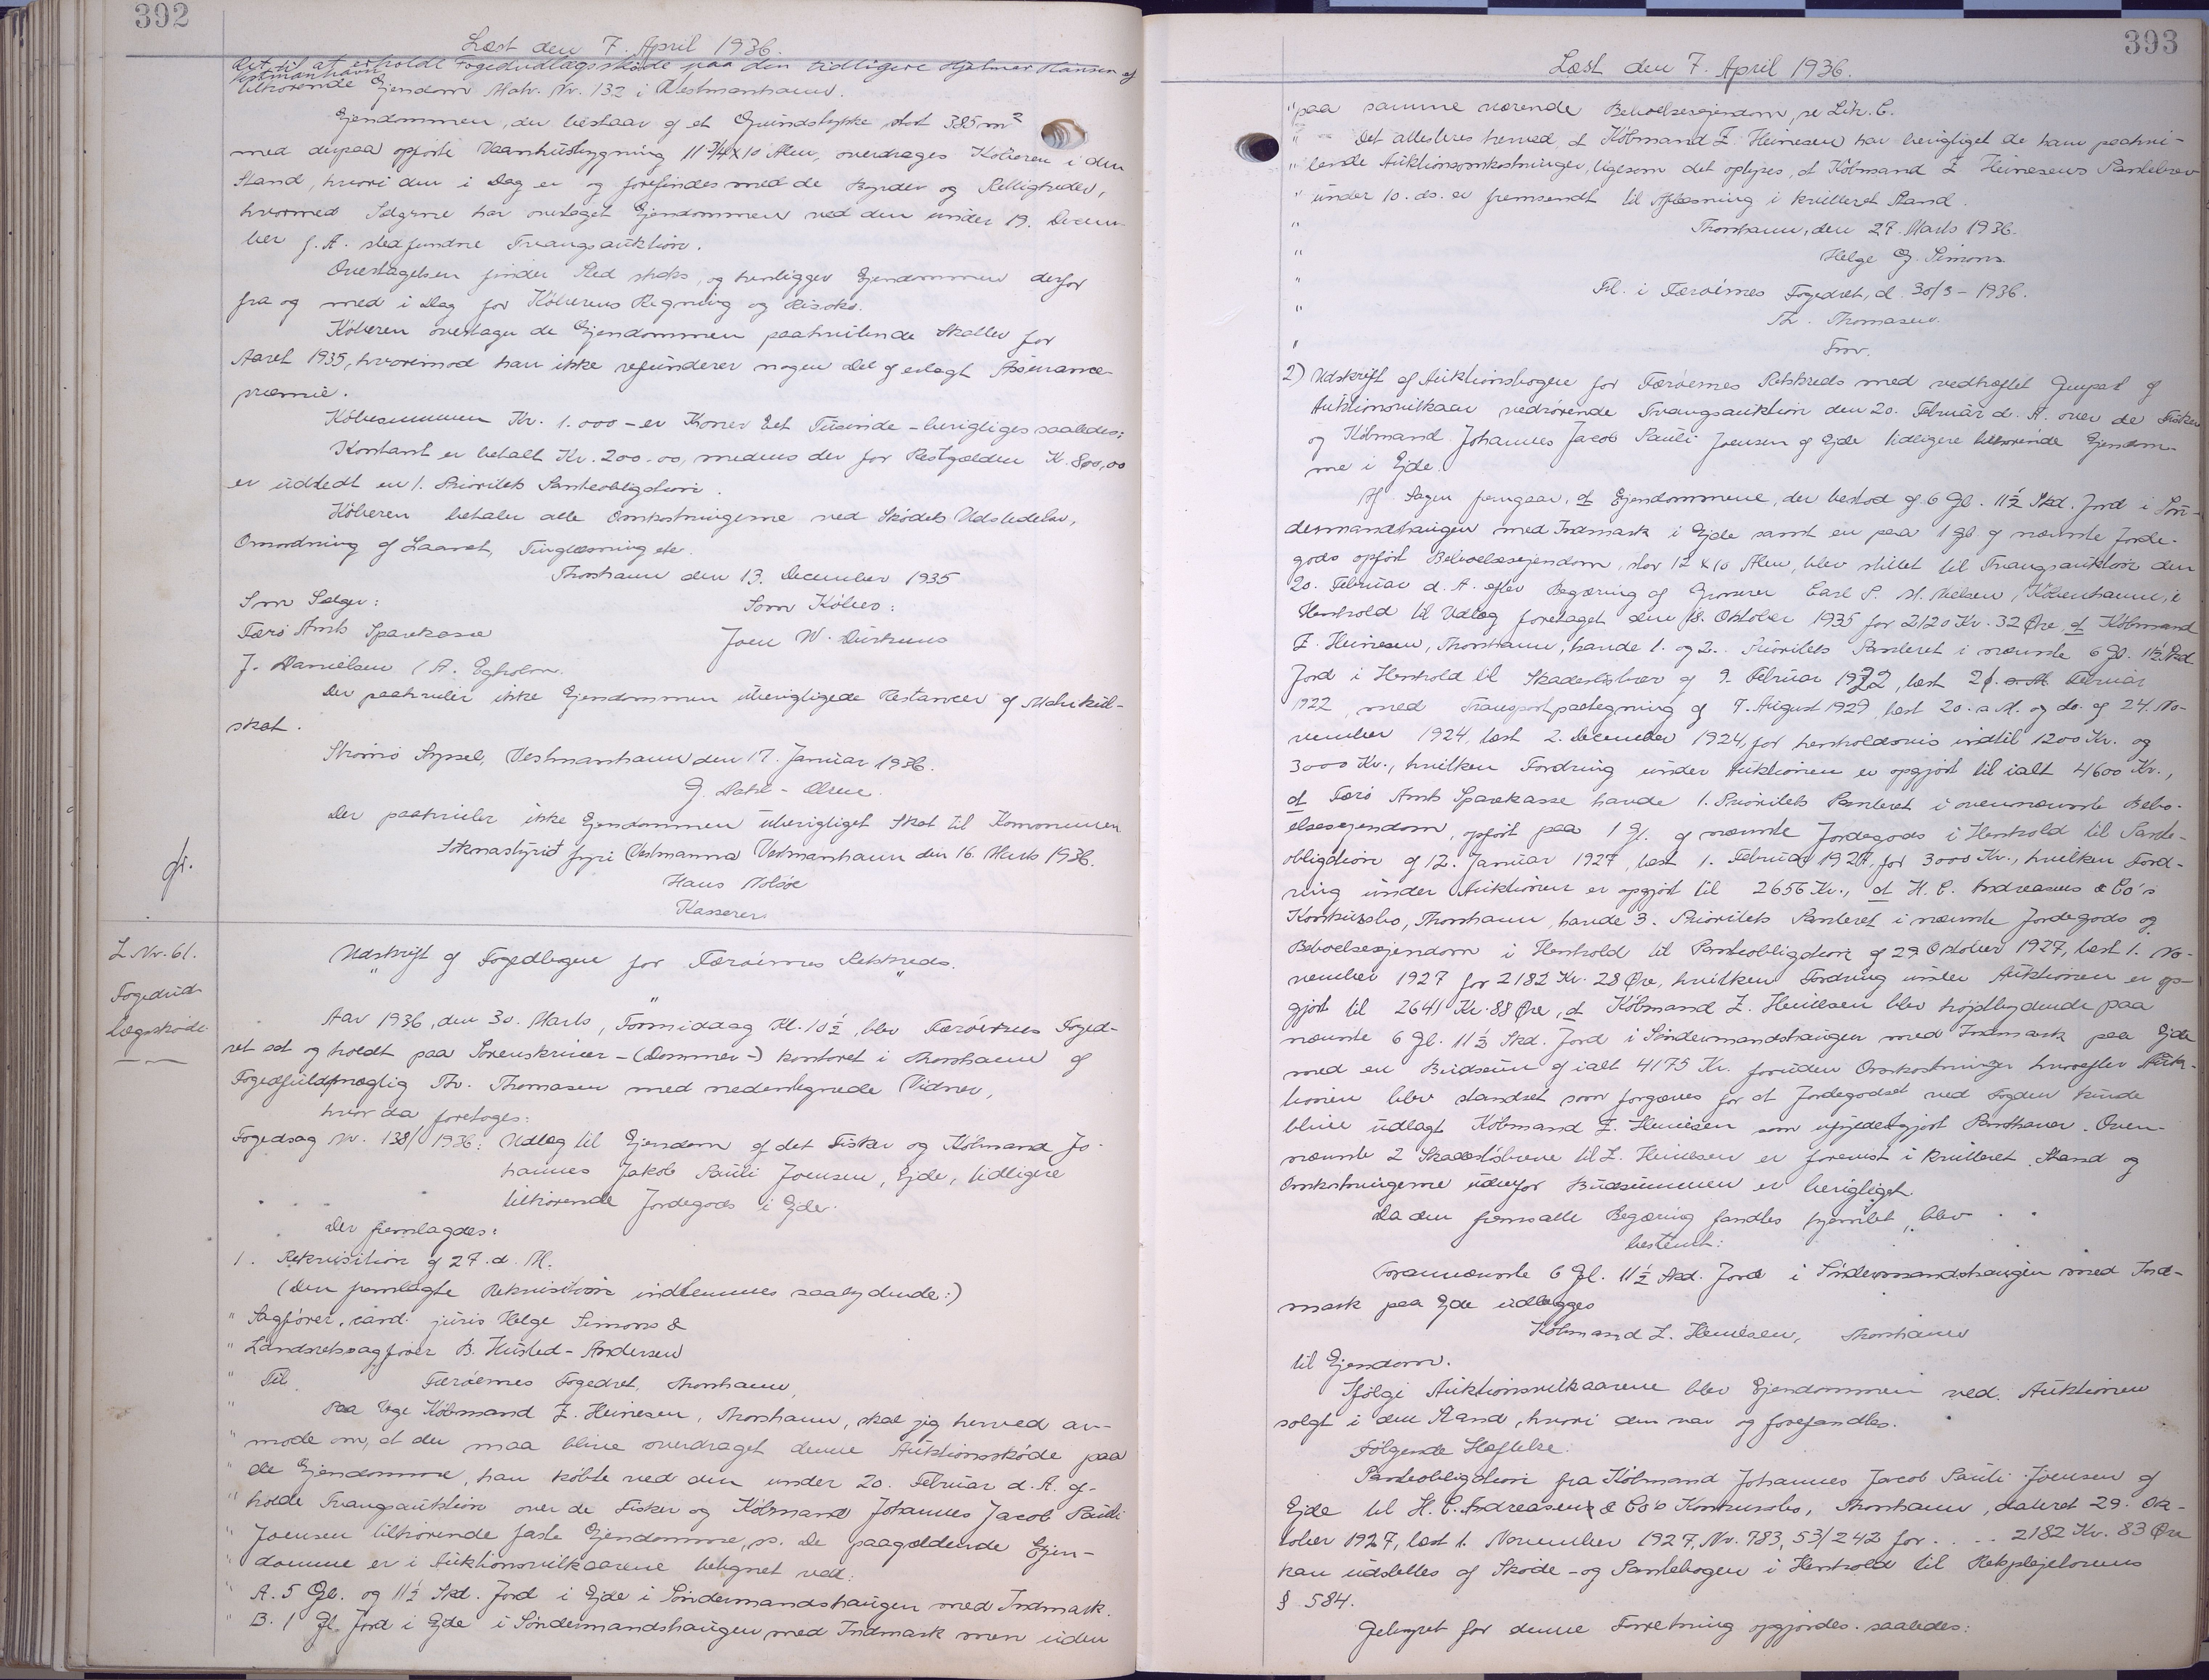 392
Læst den 7. April 1936.
Ret til at erholde Fogedudlægsskøde paa den tidligere Hjalmar Hansen af
Vestmanhavn
tilhørende Ejendom Matr. Nr. 132 i Vestmanhavn.
Ejendommen, der bestaar af et Grundstykke, stort 385 m²
med derpaa opførte Vaanhusbygning 11 3/4 x 10 Alen, overdrages Køberen i den
Stand, hvori den i Dag er og forefindes med de Byrder og Rettigheder,
hvormed Sælgerne har overtaget Ejendommen ved den under 19. Decem-
ber f. A. stedfundne Tvangsauktion.
Overtagelsen finder Sted straks, og henligger Ejendommen derfor
fra og med i Dag for Køberens Regning og Risiko.
Køberen overtager de Ejendommen paahvilende Skatter for
Aaret 1935, hvorimod han ikke refunderer nogen Del af erlagt Assurance-
præmie.
Købesummen Kr. 1.000 – er Kroner Eet Tusinde – berigtiges saaledes:
Kontant er betalt Kr. 200.00, medens der for Restgælden Kr. 800,00
er udstedt en 1. Prioritets Panteobligation.
Køberen betaler alle Omkostningerne ved Skødets Udstedelse,
Omordning af Laanet, Tinglæsning etc.
Thorshavn den 13. December 1935
Som Sælger: Som Køber:
Færø Amts Sparekasse Joen W. Durhuus
J. Danielsen / A. Egholm.
Der paahviler ikke Ejendommen uberigtigede Restancer af Matrikul-
skat.
Strømø Syssel, Vestmanhavn den 17. Januar 1936.
G. Dahl-Olsen.
Der paahviler ikke Ejendommen uberigtiget Skat til Kommunen
Soknastýrið fyri Vestmanna Vestmanhavn den 16. Marts 1936.
Hans Nolsøe
Kasserer
L. Nr. 61.
Fogedud-
lægsskøde
Udskrift af Fogedbogen for Færøernes Retskreds.
" " "
Aar 1936, den 30. Marts, Formiddag Kl. 10 1/2, blev Færøernes Foged-
ret sat og holdt paa Sorenskriver-(Dommer-)kontoret i Thorshavn af
Fogedfuldmægtig Th. Thomasen med nedentegnede Vidner,
hvor da foretoges:
Fogedsag Nr. 138/1936: Udlæg til Ejendom af det Fisker og Købmand Jo-
hannes Jakob Pauli Joensen, Ejde, tidligere
tilhørende Jordegods i Ejde.
Der fremlagdes:
1. Rekvisition af 27. d. M.
(Den fremlagte Rekvisition indlemmes saalydende:)
" Sagfører, cand. juris Helge Simons &
" Landsretssagfører B. Husted-Andersen
" Til Færøernes Fogedret, Thorshavn,
" Paa Vegne Købmand Z. Heinesen, Thorshavn, skal jeg herved an-
" mode om, at der maa blive overdraget denne Auktionsskøde paa
" de Ejendomme, han købte ved den under 20. Februar d. A. af-
" holdte Tvangsauktion over de Fisker og Købmand Johannes Jacob Pauli
" Joensen tilhørende faste Ejendomme, ss. De paagældende Ejen-
" domme er i Auktionsvilkaarene betegnet ved:
" A. 5 Gl. og 11 1/2 Skd. Jord i Ejde i Söndermandshaugen med Indmark.
" B. 1 Gl. Jord i Ejde i Söndermandshaugen med Indmark men uden
393
Læst den 7. April 1936.
" paa samme værende Beboelsesejendom, se Litr. C.
" Det attesteres herved, at Købmand Z. Heinesen har berigtiget de ham paahvi-
" lende Auktionsomkostninger, ligesom det oplyses, at Købmand Z. Heinesens Pantebrev
" under 10. ds. er fremsendt til Aflæsning i kvitteret Stand.
" Thorshavn, den 27. Marts 1936.
" Helge G. Simons
" Frl. i Færøernes Fogedret, d. 30/3 – 1936.
" Th. Thomasen.
" Fmr.
2) Udskrift af Auktionsbogen for Færøernes Retskreds med vedhæftet Genpart af
Auktionsvilkaar vedrørende Tvangsauktion den 20. Februar d. A. over de Fisker
og Købmand Johannes Jacob Pauli Joensen af Ejde tidligere tilhørende Ejendom-
me i Ejde.
Af Sagen fremgaar, at Ejendommene, der bestod af 6 Gl. 11 1/2 Skd. Jord i Sön-
dermandshaugen med Indmark i Ejde samt en paa 1 Gl. af nævnte Jorde-
gods opført Beboelsesejendom, stor 12 x 10 Alen, blev stillet til Tvangsauktion den
20. Februar d. A. efter Begæring af Grosserer Carl P. M. Nielsen, København, i
Henhold til Udlæg foretaget den 18. Oktober 1935 for 2120 Kr. 32 Øre, at Købmand
Z. Heinesen, Thorshavn, havde 1. og 2. Prioritets Panteret i nævnte 6 Gl. 11 1/2 Skd.
Jord i Henhold til Skadesløsbrev af 9. Februar 1922, læst 21. Februar
1922, med Transportpaategning af 7. August 1929, læst 20. s. M. og do. af 24. No-
vember 1924, læst 2. December 1924, for henholdsvis indtil 1200 Kr. og
3000 Kr., hvilken Fordring under Auktionen er opgjort til ialt 4600 Kr.,
at Færø Amts Sparekasse havde 1. Prioritets Panteret i ovennævnte Bebo-
elsesejendom, opført paa 1 Gl. af nævnte Jordegods i Henhold til Pante-
obligation af 12. Januar 1927, læst 1. Februar 1927, for 3000 Kr., hvilken Ford-
ring under Auktionen er opgjort til 2656 Kr., at H. C. Andreasens & Co's
Konkursbo, Thorshavn, havde 3. Prioritets Panteret i nævnte Jordegods og
Beboelsesejendom i Henhold til Panteobligation af 29. Oktober 1927, læst 1. No-
vember 1927 for 2182 Kr. 28 Øre, hvilken Fordring under Auktionen er op-
gjort til 2641 Kr. 88 Øre, at Købmand Z. Heinesen blev højstbydende paa
nævnte 6 Gl. 11 1/2 Skd. Jord i Söndermandshaugen med Indmark paa Ejde
med en Budsum af ialt 4175 Kr. foruden Omkostninger hvorefter Auk-
tionen blev standset som forgæves for at Jordegodset ved Fogden kunde
blive udlagt Købmand Z. Heinesen som ufyldestgjort Panthaver. Oven-
nævnte 2 Skadesløsbreve til Z. Heinesen er forevist i kvitteret Stand og
Omkostningerne udenfor Budsummen er berigtiget.
Da den fremsatte Begæring fandtes hjemlet, blev
bestemt:
Forannævnte 6 Gl. 11 1/2 Skd. Jord i Söndermandshaugen med Ind-
mark paa Ejde udlægges
Købmand Z. Heinesen, Thorshavn
til Ejendom.
Ifølge Auktionsvilkaarene blev Ejendommen ved Auktionen
solgt i den Stand, hvori den var og forefandtes.
Følgende Hæftelse:
Panteobligation fra Købmand Johannes Jacob Pauli Joensen af
Ejde til H. C. Andreasens & Co's Konkursbo, Thorshavn, dateret 29. Ok-
tober 1927, læst 1. November 1927, Nr. 783, 53/242 for . . . . 2182 Kr. 83 Øre
kan udslettes af Skøde- og Pantebogen i Henhold til Retsplejelovens
§ 584.
Gebyret for denne Forretning opgjordes saaledes: